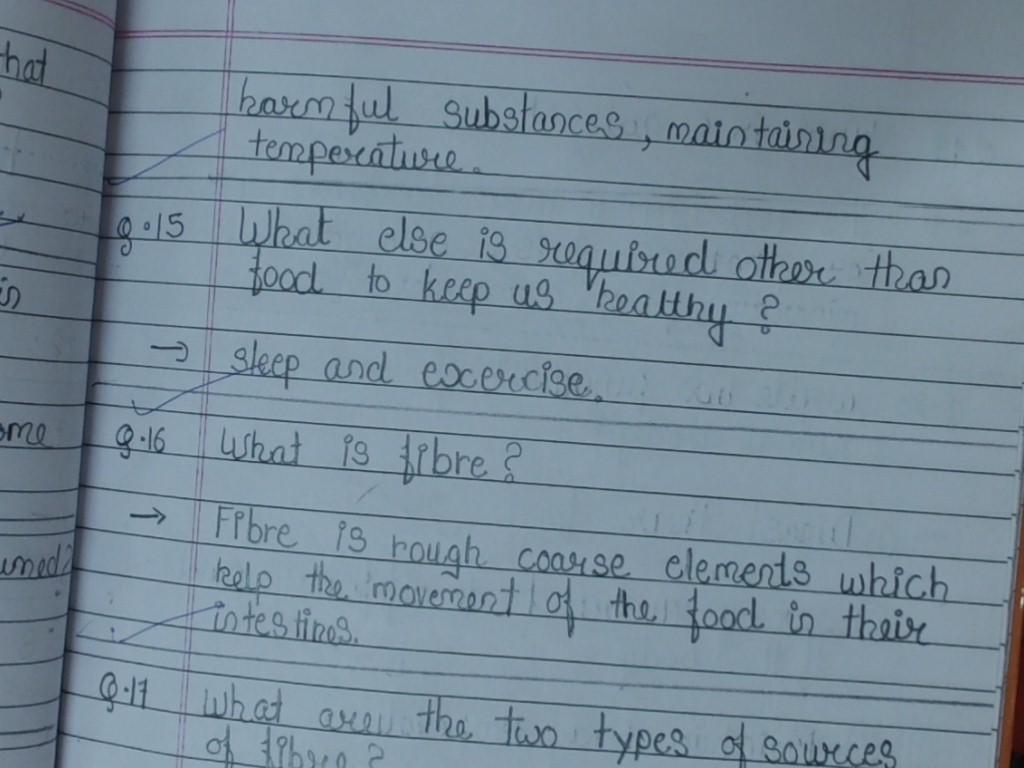 hat
harmful substances, maintaining
temperature.
Q.15 What else is required other than
food to keep us healthy?
in
→ sleep and excercise.
ome
Q.16 What is fibre?
→ Fibre is rough coarse elements which
umed?
help the movement of the food in their
intestines.
Q.17 What are the two types of sources
of fibre?